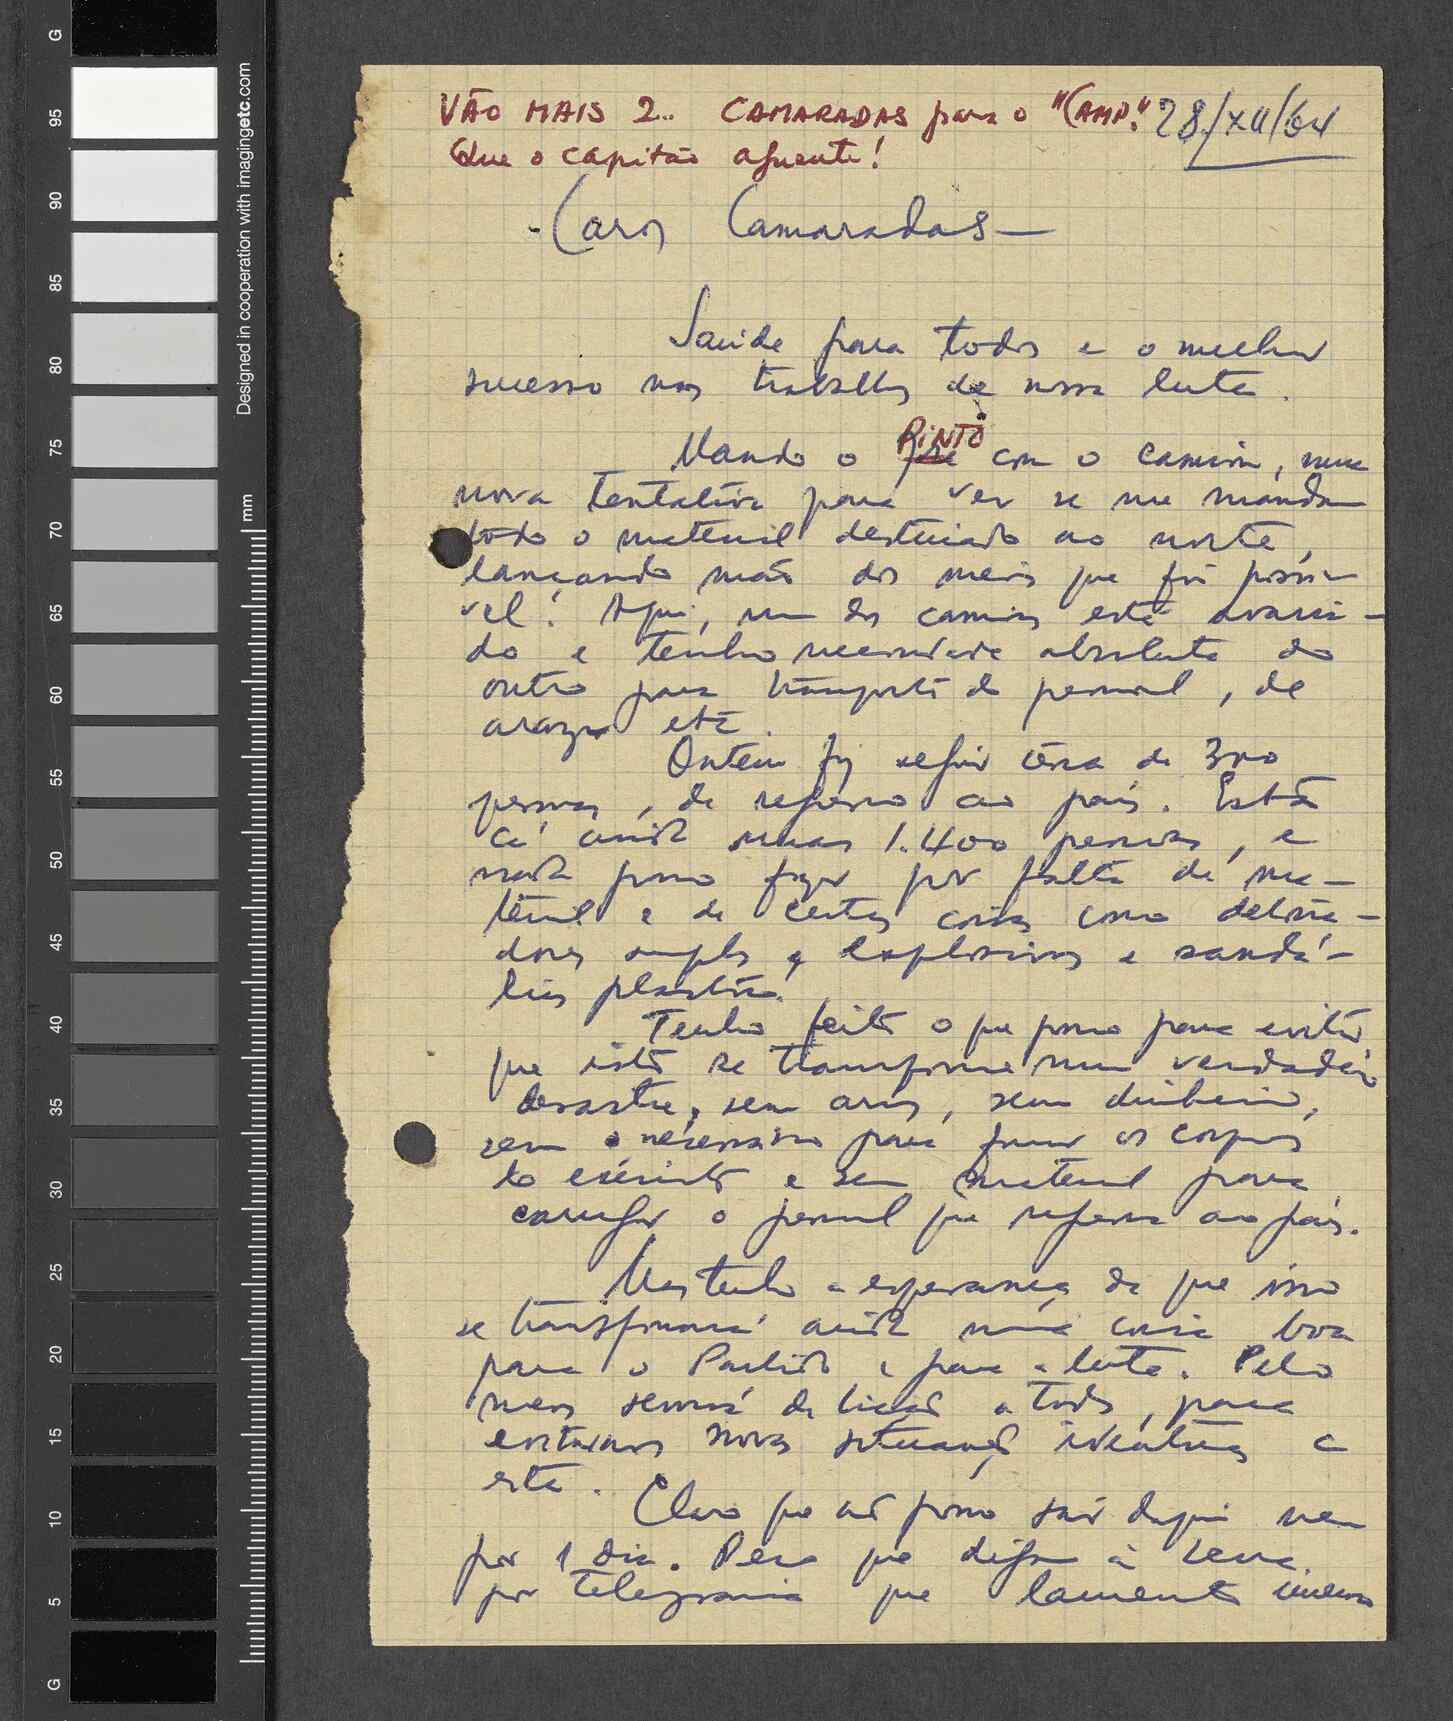 VÃO MAIS 2.. CAMARADAS para o "CAMP." 28/XII/64
Que o capitão aguente!
-Caros Camaradas-
Saúde para todos e o melhor
sucesso nos trabalhos de nossa luta.
Mando o PINTO com o camion, numa
nova tentativa para ver se me mandam
todo o material destinado ao norte,
lançando mão dos meios que fôr possí-
vel. Aqui, um dos camions está avaria-
do e tenho necessidade absoluta do
outro para transporte do pessoal, de
arroz etc.
Ontem fiz seguir cêrca de 300
pessoas, de regresso ao país. Estão
cá ainda umas 1.400 pessoas, e
nada posso fazer por falta de ma-
terial e de certas coisas como detona-
dores simples e explosivos e sandá-
lias plástico.
Tenho feito o que posso para evitar
que isto se transforme num verdadeiro
desastre, sem arroz, sem dinheiro,
sem o necessário para formar os corpos
do exército e sem material para
carregar o pessoal que regressa ao país.
Mas tenho a esperança de que isso
se transformará ainda numa coisa boa
para o Partido e para a luta. Pelo
menos servirá de lição a todos, para
evitarmos novas situações idênticas a
esta.
Claro que não posso sair daqui nem
por 1 dia. Peço que digam à
por telegrama que lamento imenso